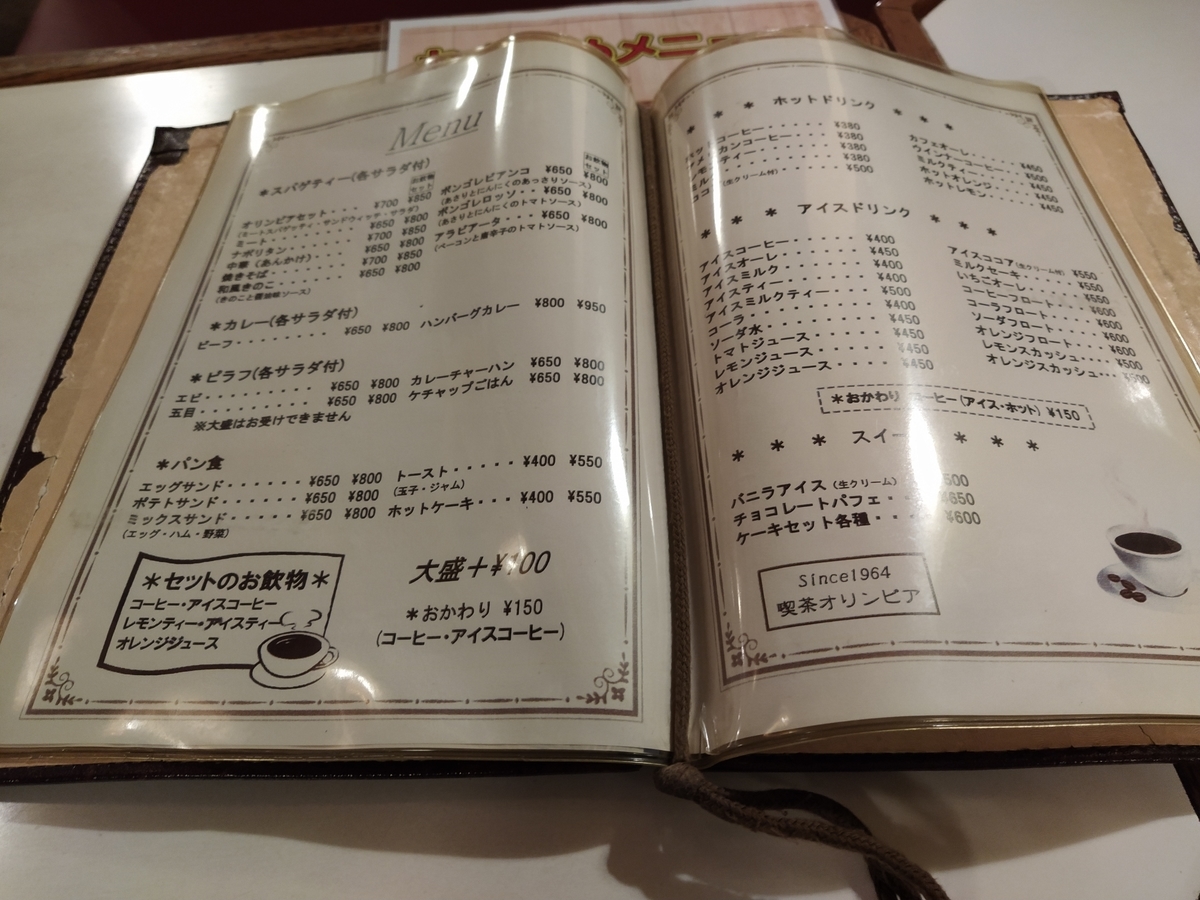 メニュー
Menu
＊スパゲティー(各サラダ付)
お飲物セット
オリンピアセット・・・ ¥700 ¥850
(ミートスパゲッティ・サンドウィッチ・サラダ)
ミート・・・・・・・・ ¥650 ¥800
ナポリタン・・・・・・ ¥700 ¥850
中華（あんかけ）・・・ ¥650 ¥800
焼きそば・・・・・・・ ¥700 ¥850
和風きのこ・・・・・・ ¥650 ¥800
(きのこと醤油味ソース)
お飲物セット
ボンゴレビアンコ ¥650 ¥800
(あさりとにんにくのあっさりソース)
ボンゴレロッソ・・ ¥650 ¥800
(あさりとにんにくのトマトソース)
アラビアータ・・・ ¥650 ¥800
(ベーコンと唐辛子のトマトソース)
＊カレー(各サラダ付)
ビーフ・・・・・・・・ ¥650 ¥800 ハンバーグカレー ¥800 ¥950
＊ピラフ(各サラダ付)
エビ・・・・・・・・・ ¥650 ¥800 カレーチャーハン ¥650 ¥800
五目・・・・・・・・・ ¥650 ¥800 ケチャップごはん ¥650 ¥800
※大盛はお受けできません
＊パン食
エッグサンド・・・・・・ ¥650 ¥800 トースト・・・・・ ¥400 ¥550
(玉子・ジャム)
ポテトサンド・・・・・・ ¥650 ¥800
ミックスサンド・・・・・ ¥650 ¥800 ホットケーキ・・・ ¥400 ¥550
(エッグ・ハム・野菜)
＊セットのお飲物＊
コーヒー・アイスコーヒー
レモンティー・アイスティー
オレンジジュース
大盛＋¥100
＊おかわり ¥150
(コーヒー・アイスコーヒー)
＊ ＊ ＊ ホットドリンク ＊ ＊ ＊
コーヒー・・・・・ ¥380
カンコーヒー・・・ ¥380
ティー・・・・・・ ¥380
¥380
(生クリーム付) ¥500
カフェオーレ・・・・・ ¥450
ウインナーコーヒー・・ ¥450
ミルクティー・・・・・ ¥450
ホットオレンジ・・・・ ¥450
ホットレモン・・・・・ ¥450
＊ ＊ ＊ アイスドリンク ＊ ＊ ＊
アイスコーヒー・・・・・・ ¥400
アイスオーレ・・・・・・・ ¥450
アイスミルク・・・・・・・ ¥400
アイスティー・・・・・・・ ¥400
アイスミルクティー・・・・ ¥500
コーラ・・・・・・・・・・ ¥400
ソーダ水・・・・・・・・・ ¥450
トマトジュース・・・・・・ ¥450
レモンジュース・・・・・・ ¥450
オレンジジュース・・・・・ ¥450
アイスココア(生クリーム付) ¥550
ミルクセーキ・・・・・ ¥550
いちごオーレ・・・・・ ¥550
コーヒーフロート・・・ ¥600
コーラフロート・・・・ ¥600
ソーダフロート・・・・ ¥600
オレンジフロート・・・ ¥600
レモンスカッシュ・・・・ ¥550
オレンジスカッシュ・・・
＊おかわり コーヒー(アイス・ホット) ¥150
＊ ＊ ＊ スイー ＊ ＊ ＊
バニラアイス(生クリーム) 500
チョコレートパフェ・・ ¥650
ケーキセット各種・・・ ¥600
Since1964
喫茶オリンピア